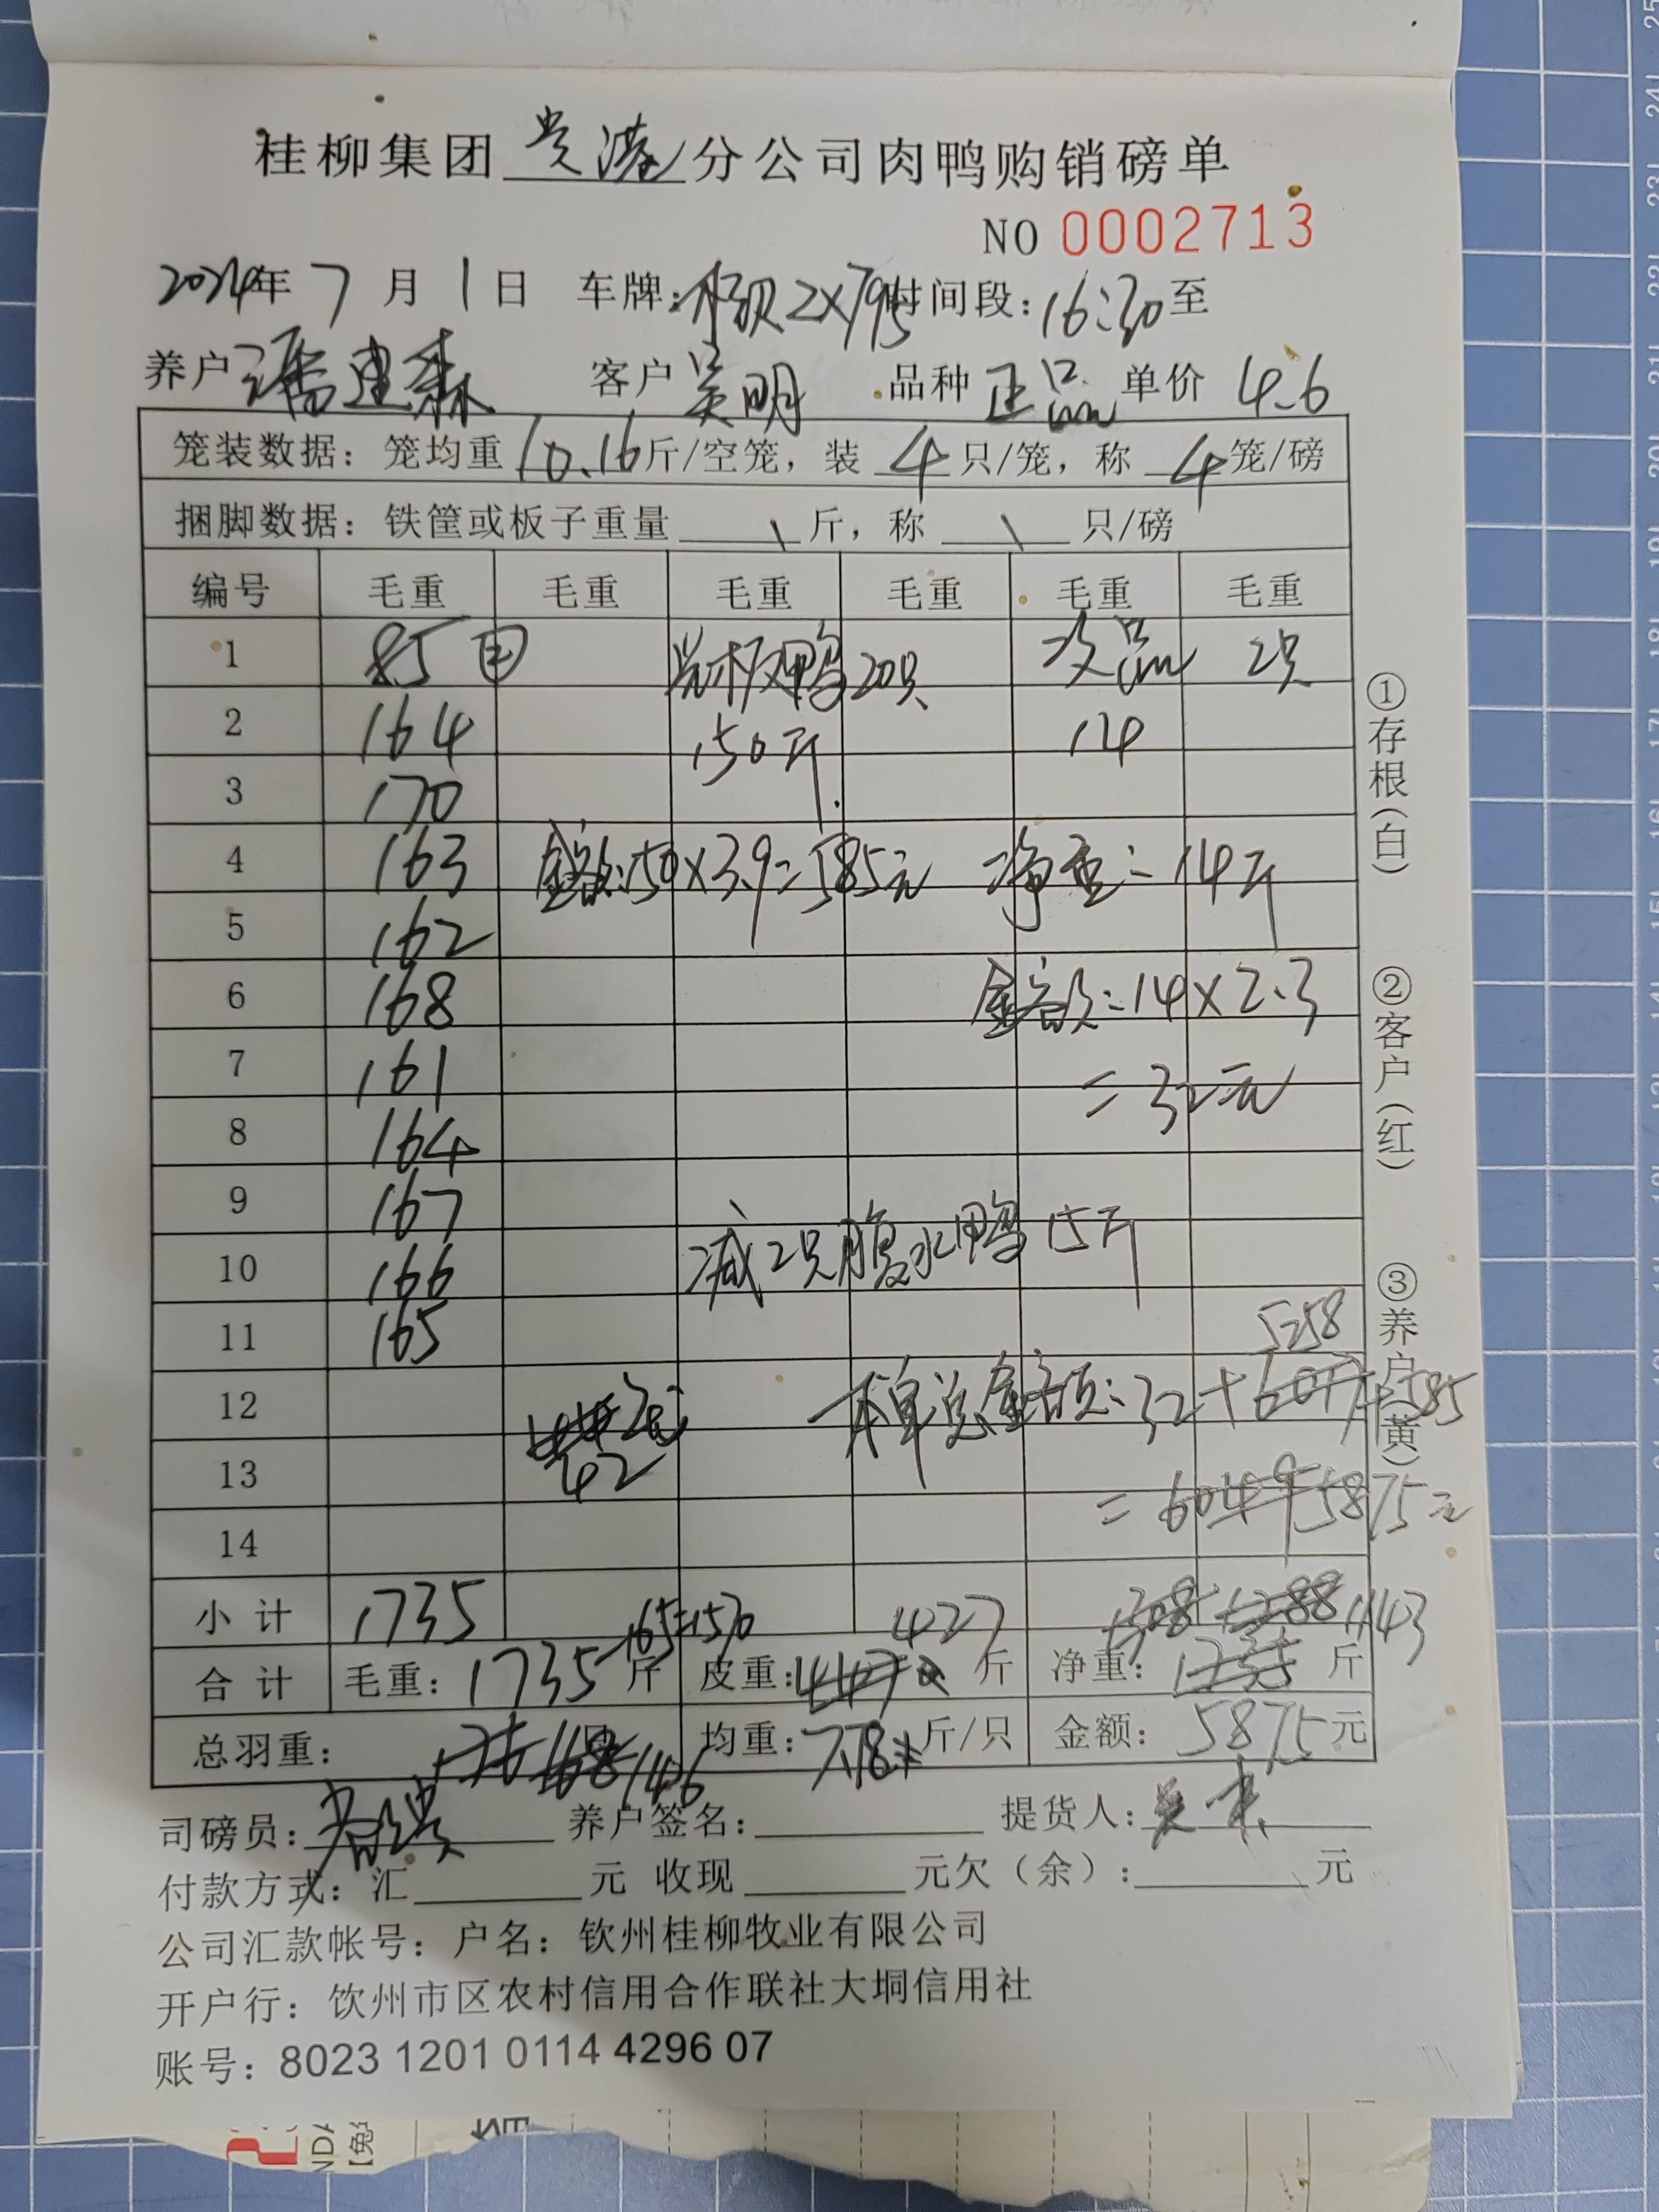 桂柳集团贵港分公司肉鸭购销磅单
NO 0002713
2024年7月1日 车牌:桂R2X795 时间段:16:30至
养户潘建森 客户吴明 品种正品 单价4.6
笼装数据:笼均重10.16斤/空笼,装4只/笼,称4笼/磅
捆脚数据:铁筐或板子重量\斤,称\只/磅
编号 毛重 毛重 毛重 毛重 毛重 毛重
1 85 光板鸭20只 次品 2只
2 164 150斤 14
3 170
4 163 金额:150×3.9=585元 净重:14斤
5 162
6 168 金额:14×2.3
7 161 =32元
8 164
9 167
10 166 减2只腹水鸭15斤
11 165 5258
12 本单总金额:32+6017+585
13 42 =6049 5875元
14
小计 1735 165=1570 427 1308 1288 1143
合计 毛重:1735斤 皮重:斤 净重:斤
总羽重: 168 146 均重:7.8斤/只 金额:5875元
司磅员: 养户签名: 提货人:
付款方式:汇 元 收现 元欠(余): 元
公司汇款帐号:户名:钦州桂柳牧业有限公司
开户行:饮州市区农村信用合作联社大垌信用社
账号:8023 1201 0114 4296 07
①存根(白)
②客户(红)
③养户(黄)